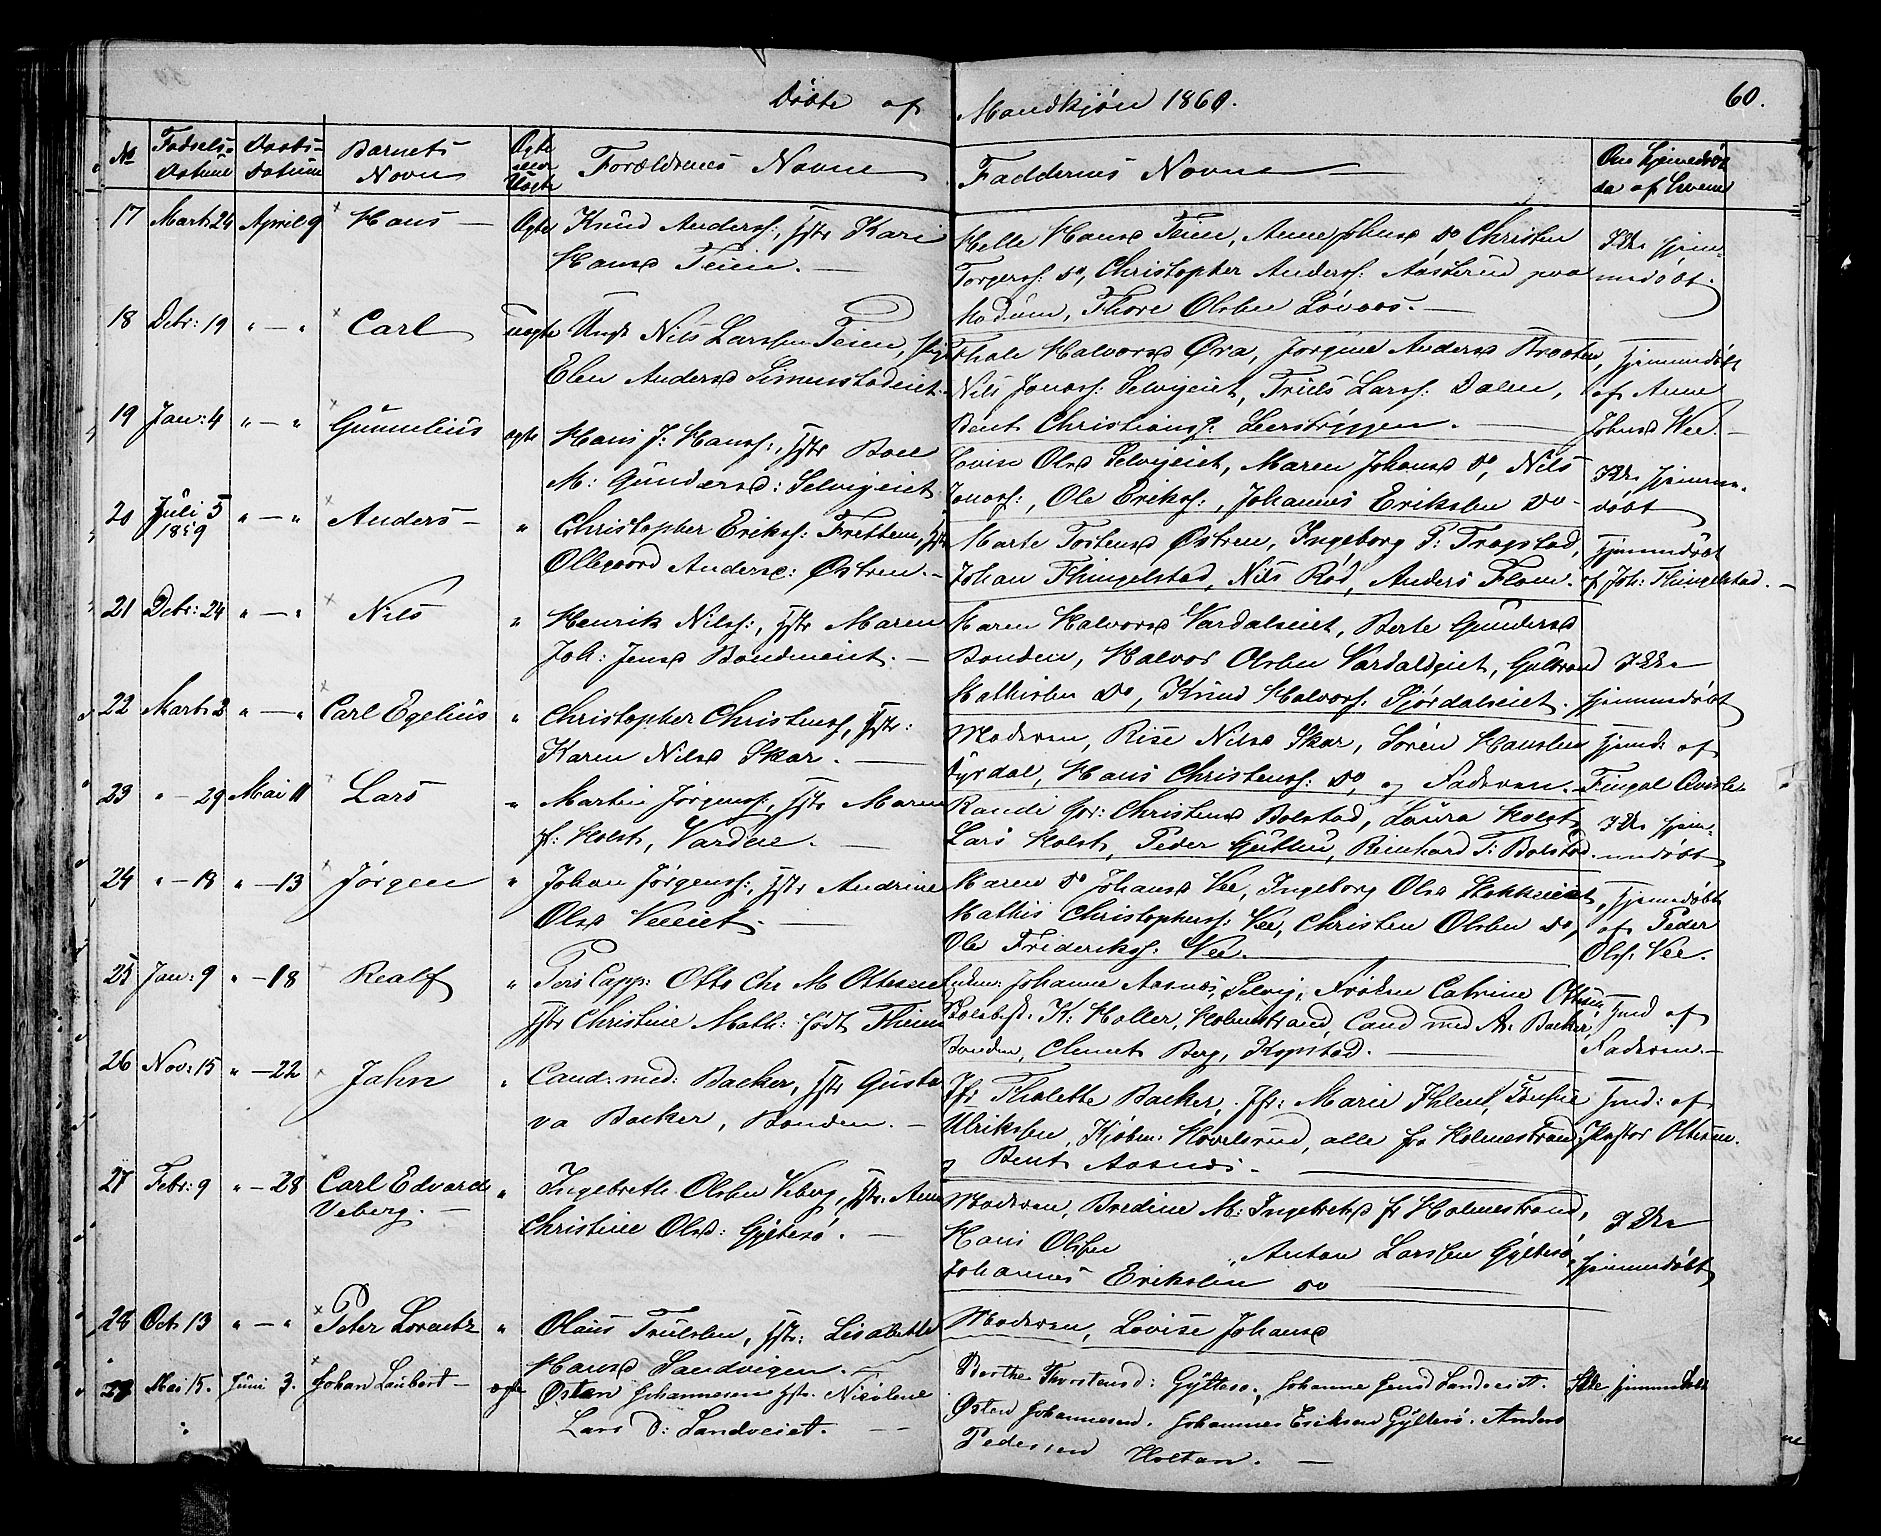 Døbte af Mandkjøn 1860. 60.
No Fødsels-Datum Daabs-Datum Barnets Navn Ægte eller Uægte Forældrenes Navne Faddernes Navne Om Hjemmedøbt
17 Marts 24 April 9 Hans Ægte Knud Anderss:, Hstr Kari
Hansd Teien. —
Helle Hansd Teien, Anne Johnsd do Christen
Torgerss: do, Christopher Anderss: Aasterud paa
Modum, Thore Olsen Løvaas. —
Ikke hjem-
medøbt.
18 Debr: 19 " — " Carl uægte Ungk Nils Larssen Teien, Pige
Elen Andersd Simenstadeiet.
Thale Halvorsd Øra, Jørgine Andersd Braaten,
Nils Jonass: Selvigeiet, Truls Larss: Dalen,
Bent Christianss: Leerstryggen. —
hjemmedøbt
af Anne
Johnsd Wee. —
19 Jan: 4 " — " Gunnelius ægte Hans J: Hanss:, Hstr Boel
M: Gundersd: Selvigeiet
Lovise Olsd Selvigeiet, Maren Johansd do, Nils
Jonass:, Ole Erikss:, Johannes Eriksen do -
Ikke hjemme-
døbt
20 Juli 5 1859 " — " Anders " Christopher Erikss: Fretteim, Hstr
Ollegaard Andersd: Østren. —
Marte Tostensd Østren, Ingeborg P: Trogstad,
Johan Thingelstad, Nils Rød, Anders Flom.
hjemmedøbt
af Joh: Thingelstad. —
21 Debr: 24 " — " Nils " Henrik Nilss:, Hstr Maren
Joh: Jensd Bondeneiet. —
Maren Halvorsd Vardalseiet, Berte Gundersd
Bonden, Halvor Olsen Vardalseiet, Gulbrand
Mathisen do, Knud Halvors. Fjordalseiet.
Ikke
hjemmedøbt
22 Marts 2 " — " Carl Egelius " Christopher Christenss, Hstr:
Karen Nilsd Skar. —
Moderen, Rise Nilsd Skar, Søren Hanssen
Dyrdal, Hans Christenss: do, og Faderen.
hjemd: af
23 " — 29 Mai 11 Lars " Martin Jørgenss:, Hstr Maren
f: Holst, Vardal. —
Randi Gor: Christensd Bolstad, Laura Holst,
Lars Holst, Peder Gutten, Reinhard T: Bolstad.
Ikke hjem-
medøbt
24 " — 18 " — 13 Jørgen " Johan Jørgenss:, Hstr Andrine
Olsd Veeeiet. —
Maren do Johansd Vee, Ingeborg Olsd Stokkeeiet,
Mathis Christopherss: Vee, Christen Olsen do,
Ole Frideriks: Vee.
hjemmedøbt
af Peder
Olss: Vee.
25 Jan: 9 " — 18 Realf " Pers Capp: Otto Chr M Ottesen
Hstr Christine Math: født Thiem
Johanne Aasnæs, Selvig, Frøken Catrine Ottesen,
K: Holler, Holmestrand, Cand med A: Backer,
Bonden, Clement Berg, Kopstad. —
hjmd af
Faderen. —
26 Nov: 15 " — 22 Jahn " Cand: med: Backer, Hstr Gusta
va Backer, Bonden. —
Jfr Tholette Backer, Jfr: Marie Ihlen,
Ulriksen, Kjøbm: Hovelsrud, alle fra Holmestrand,
og Bent Aasnæs. —
hjmd: af
Pastor Ottesen.
27 Febr: 9 " — 28 Carl Edvard
Veberg. — " Ingebreth Olsen Veberg, Hstr. Anne
Christine Olsd: Gjltesø. —
Moderen, Bredine M: Ingebretsd fr Holmestrand,
Hans Olsen " Anton Larssen Gyltesø,
Johannes Eriksen do
Ikke
hjemmedøbt
28 Oct: 13 " — " Peter Lorentz " Olaus Trulsen, Hstr: Lisabeth
Hansd Sandvigen. —
Moderen, Lovise Johansd
29 Mai 15. Juni 3. Johan Laubert — ægte Østen Johannesen Hstr. Nicoline
Lars D: Sandveiet. —
Berthe Thorstensd: Gyltesø, Johanne Jensd Sandveiet.
Østen Johannesen. Johannes Eriksen Gyltesø. Anders
Pedersen Holtan. —
Ikke hjemmedøbt